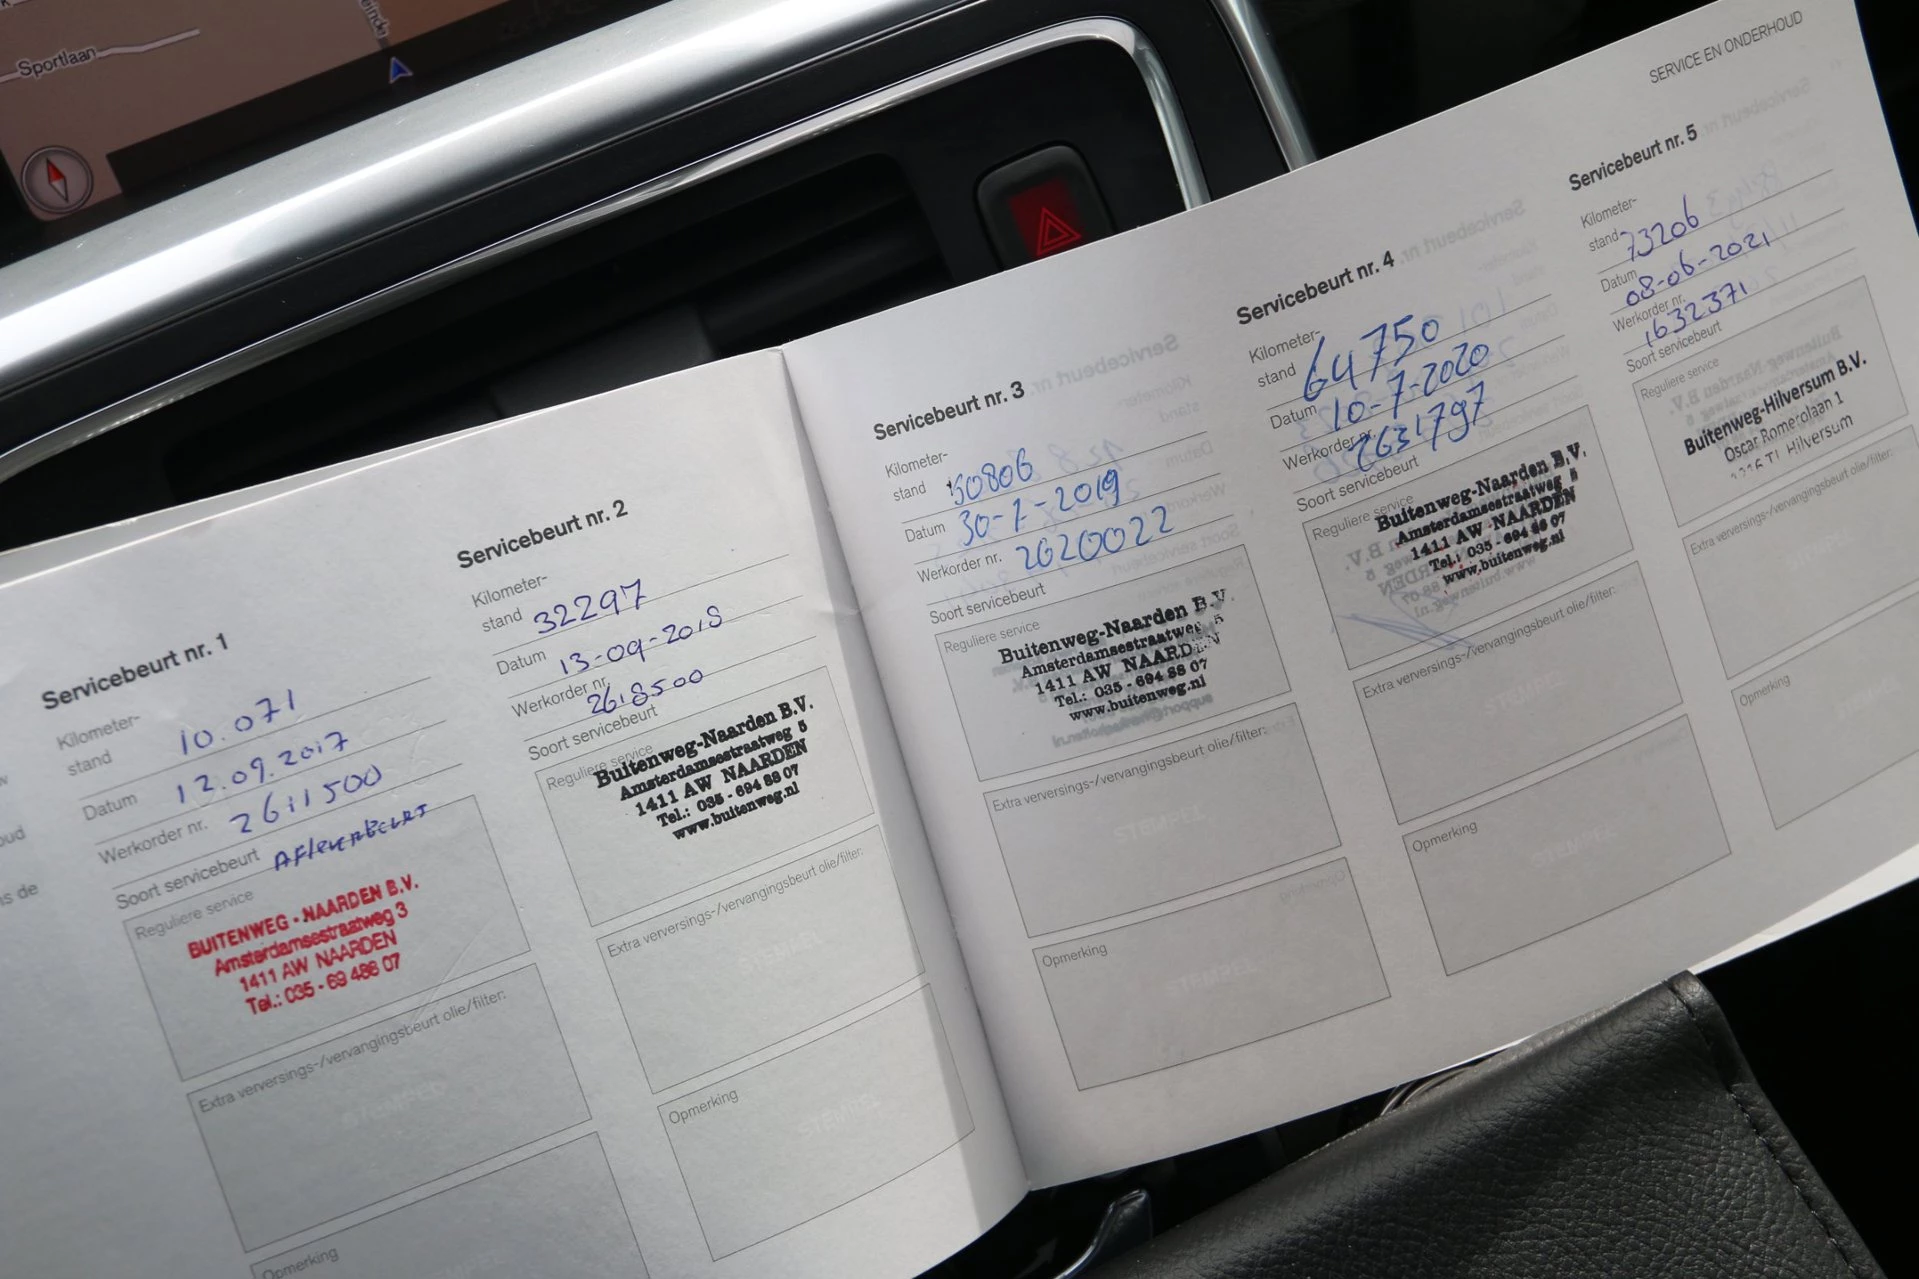 Sportlaan
SERVICE EN ONDERHOUD
Servicebeurt nr. 1
Kilometer-
stand 10.071
Datum 12.09.2017
Werkorder nr. 2611500
Soort servicebeurt
Reguliere service
BUITENWEG - NAARDEN B.V.
Amsterdamsestraatweg 3
1411 AW NAARDEN
Tel.: 035 - 69 486 07
Extra verversings-/vervangingsbeurt olie/filter:
Opmerking
Servicebeurt nr. 2
Kilometer-
stand 32297
Datum 13-09-2018
Werkorder nr. 2618500
Soort servicebeurt
Reguliere service
Buitenweg-Naarden B.V.
Amsterdamsestraatweg 5
1411 AW NAARDEN
Tel.: 035 - 694 88 07
www.buitenweg.nl
Extra verversings-/vervangingsbeurt olie/filter:
Opmerking
Servicebeurt nr. 3
Kilometer-
stand 50806
Datum 30-7-2019
Werkorder nr. 2620022
Soort servicebeurt
Reguliere service
Buitenweg-Naarden B.V.
Amsterdamsestraatweg 5
1411 AW NAARDEN
Tel.: 035 - 694 88 07
www.buitenweg.nl
Extra verversings-/vervangingsbeurt olie/filter:
Opmerking
Servicebeurt nr. 4
Kilometer-
stand 64750
Datum 10-7-2020
Werkorder nr. 2631797
Soort servicebeurt
Reguliere service
Buitenweg-Naarden B.V.
Amsterdamsestraatweg 5
1411 AW NAARDEN
Tel.: 035 - 694 88 07
www.buitenweg.nl
Extra verversings-/vervangingsbeurt olie/filter:
Opmerking
Servicebeurt nr. 5
Kilometer-
stand 73206
Datum 08-06-2021
Werkorder nr. 1632371
Soort servicebeurt
Reguliere service
Buitenweg-Hilversum B.V.
Oscar Romerolaan 1
Hilversum
Extra verversings-/vervangingsbeurt olie/filter:
Opmerking